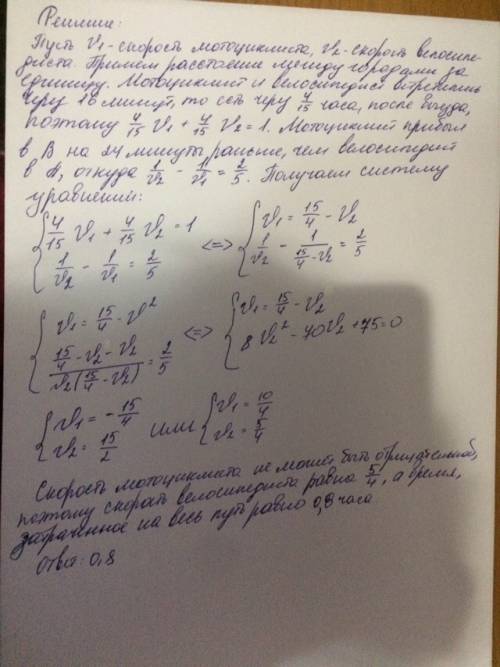 Решение:
Пусть v₁ - скорость мотоциклиста, v₂ - скорость велосипе-
диста. Примем расстояние между городами за
единицу. Мотоциклист и велосипедист встретились
через 16 минут, то есть через 4/15 часа, после выезда,
поэтому 4/15 v₁ + 4/15 v₂ = 1. Мотоциклист прибыл
в B на 24 минуты раньше, чем велосипедист
в A, откуда 1/v₂ - 1/v₁ = 2/5. Получаем систему
уравнений:
{ 4/15 v₁ + 4/15 v₂ = 1 <=> { v₁ = 15/4 - v₂
{ 1/v₂ - 1/v₁ = 2/5 { 1/v₂ - 1/(15/4 - v₂) = 2/5
{ v₁ = 15/4 - v² <=> { v₁ = 15/4 - v₂
{ (15/4 - v₂ - v₂)/(v₂(15/4 - v₂)) = 2/5 { 8v₂² - 70v₂ + 75 = 0
{ v₁ = -15/4 или { v₁ = 10/4
{ v₂ = 15/2 { v₂ = 5/4
Скорость мотоциклиста не может быть отрицательной,
поэтому скорость велосипедиста равна 5/4, а время,
затраченное на весь путь равно 0,8 часа
Ответ: 0,8